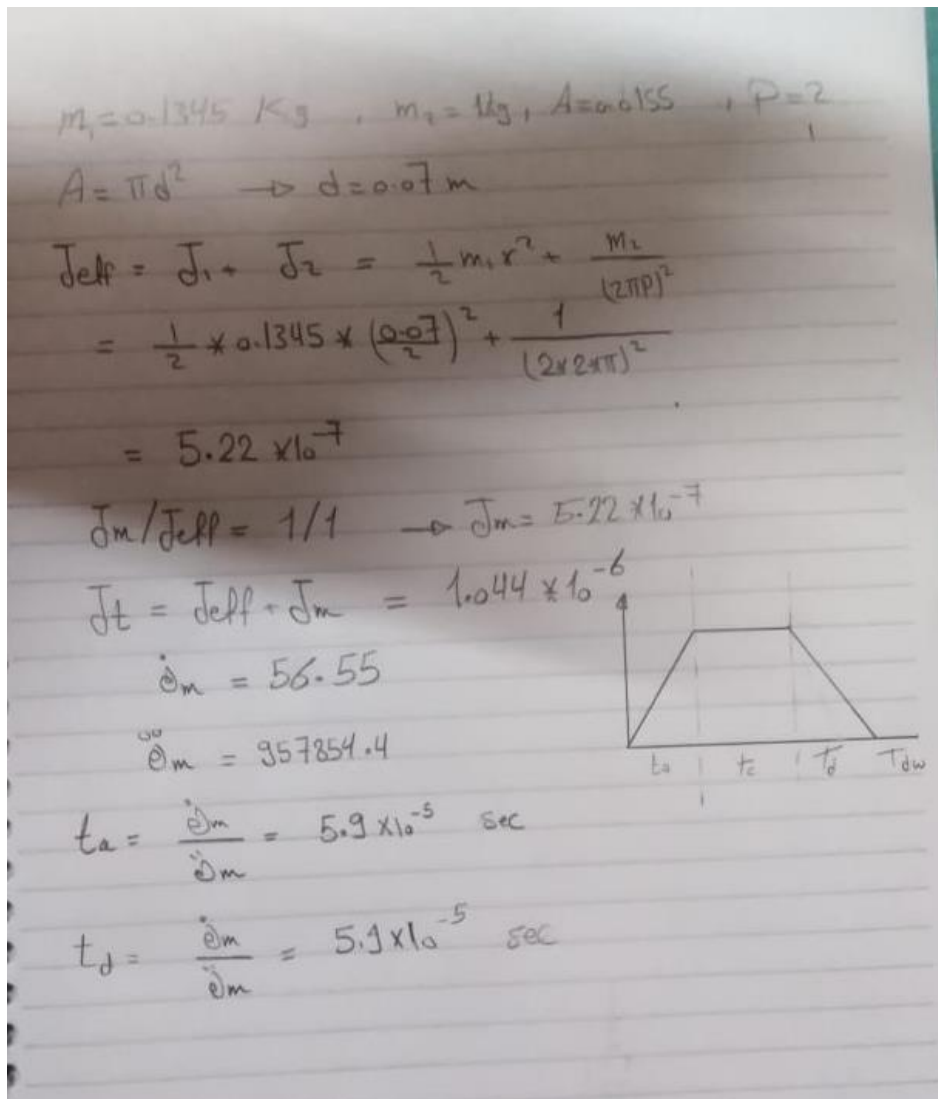 m₁=0.1345 Kg , m₂=1kg, A=0.0155 , P=2
A = πd² → d=0.07 m
Jeff = J₁+ J₂ = 1/2 m₁r² + m₂/(2πP)²
= 1/2 * 0.1345 * (0.07/2)² + 1/(2*2*π)²
= 5.22 *10⁻⁷
Jm/Jeff = 1/1 → Jm= 5.22*10⁻⁷
Jt = Jeff + Jm = 1.044 *10⁻⁶
θ̇m = 56.55
θ̈m = 957854.4
ta = θ̇m/θ̈m = 5.9 ×10⁻⁵ sec
td = θ̇m/θ̈m = 5.9×10⁻⁵ sec
ta tc Td Tdw